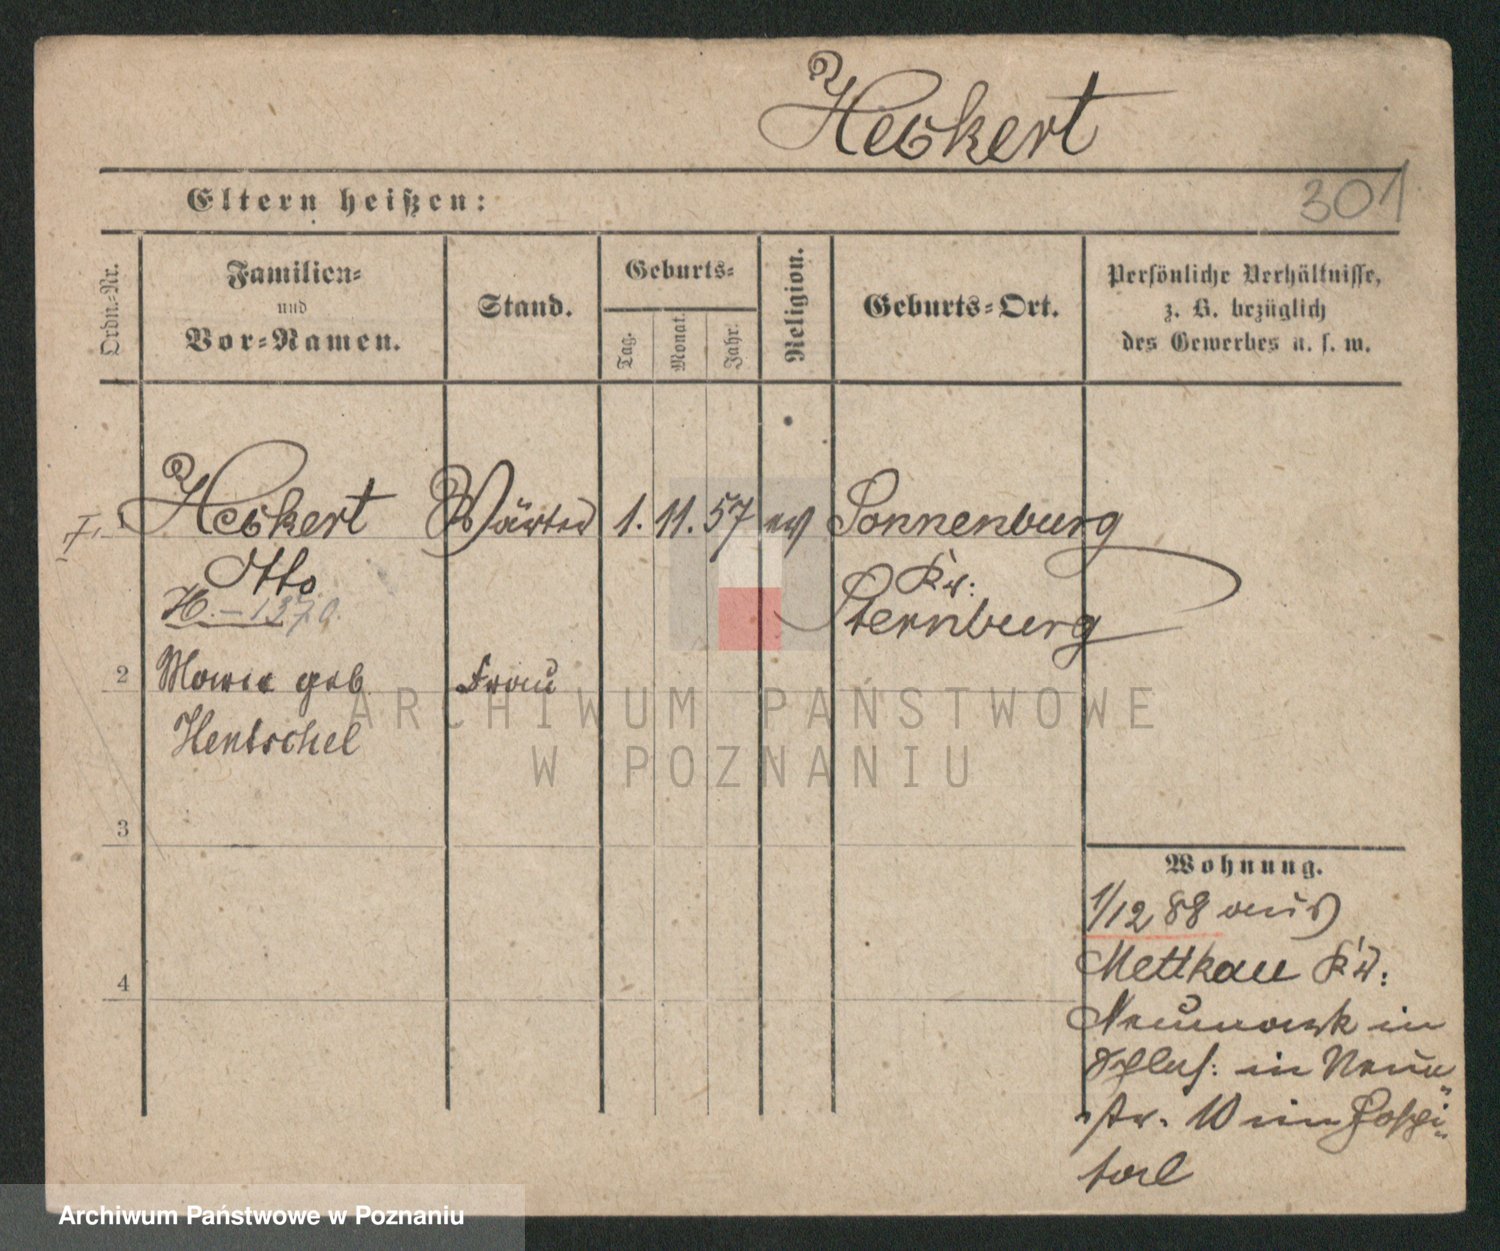 Heckert
Eltern heißen:
301
Ordn.-Nr.
Familien-
und
Vor-Namen.
Stand.
Geburts-
Tag.
Monat.
Jahr.
Religion.
Geburts-Ort.
Persönliche Verhältnisse,
z. B. bezüglich
des Gewerbes u. s. w.
1 Heckert Wärter 1. 11. 57 ev Sonnenburg
Otto Kr:
H. – 1370. Sternburg
2 Marie geb. Frau
Hentschel
3
4
Wohnung.
1/12 88 aus
Mettkau Kr:
Neumark in
Schles: in Neue
str. 10 im Hospi-
tal
ARCHIWUM PAŃSTWOWE
W POZNANIU
Archiwum Państwowe w Poznaniu